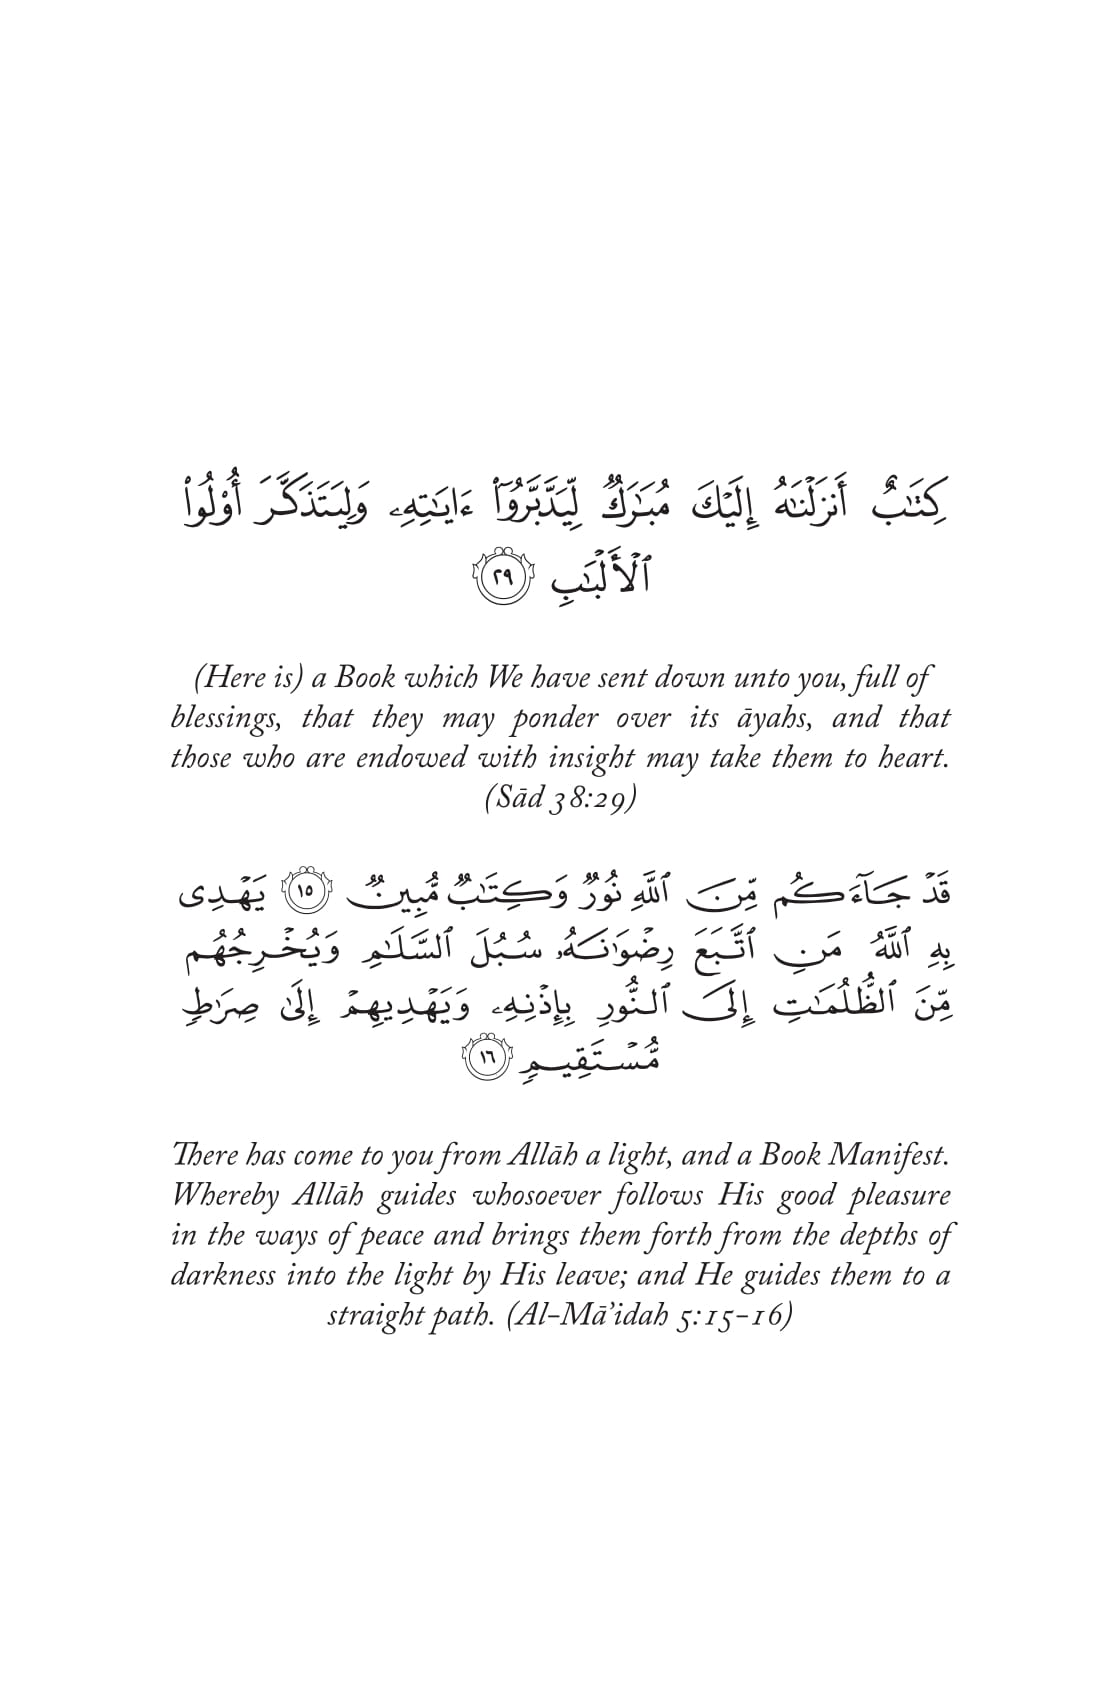 كِتَـٰبٌ أَنزَلْنَـٰهُ إِلَيْكَ مُبَـٰرَكٌ لِّيَدَّبَّرُوٓا۟ ءَايَـٰتِهِۦ وَلِيَتَذَكَّرَ أُو۟لُوا۟
ٱلْأَلْبَـٰبِ ٢٩
(Here is) a Book which We have sent down unto you, full of
blessings, that they may ponder over its āyahs, and that
those who are endowed with insight may take them to heart.
(Sād 38:29)
قَدْ جَآءَكُم مِّنَ ٱللَّهِ نُورٌ وَكِتَـٰبٌ مُّبِينٌ ١٥ يَهْدِى
بِهِ ٱللَّهُ مَنِ ٱتَّبَعَ رِضْوَٰنَهُۥ سُبُلَ ٱلسَّلَـٰمِ وَيُخْرِجُهُم
مِّنَ ٱلظُّلُمَـٰتِ إِلَى ٱلنُّورِ بِإِذْنِهِۦ وَيَهْدِيهِمْ إِلَىٰ صِرَٰطٍ
مُّسْتَقِيمٍ ١٦
There has come to you from Allāh a light, and a Book Manifest.
Whereby Allāh guides whosoever follows His good pleasure
in the ways of peace and brings them forth from the depths of
darkness into the light by His leave; and He guides them to a
straight path. (Al-Mā’idah 5:15-16)